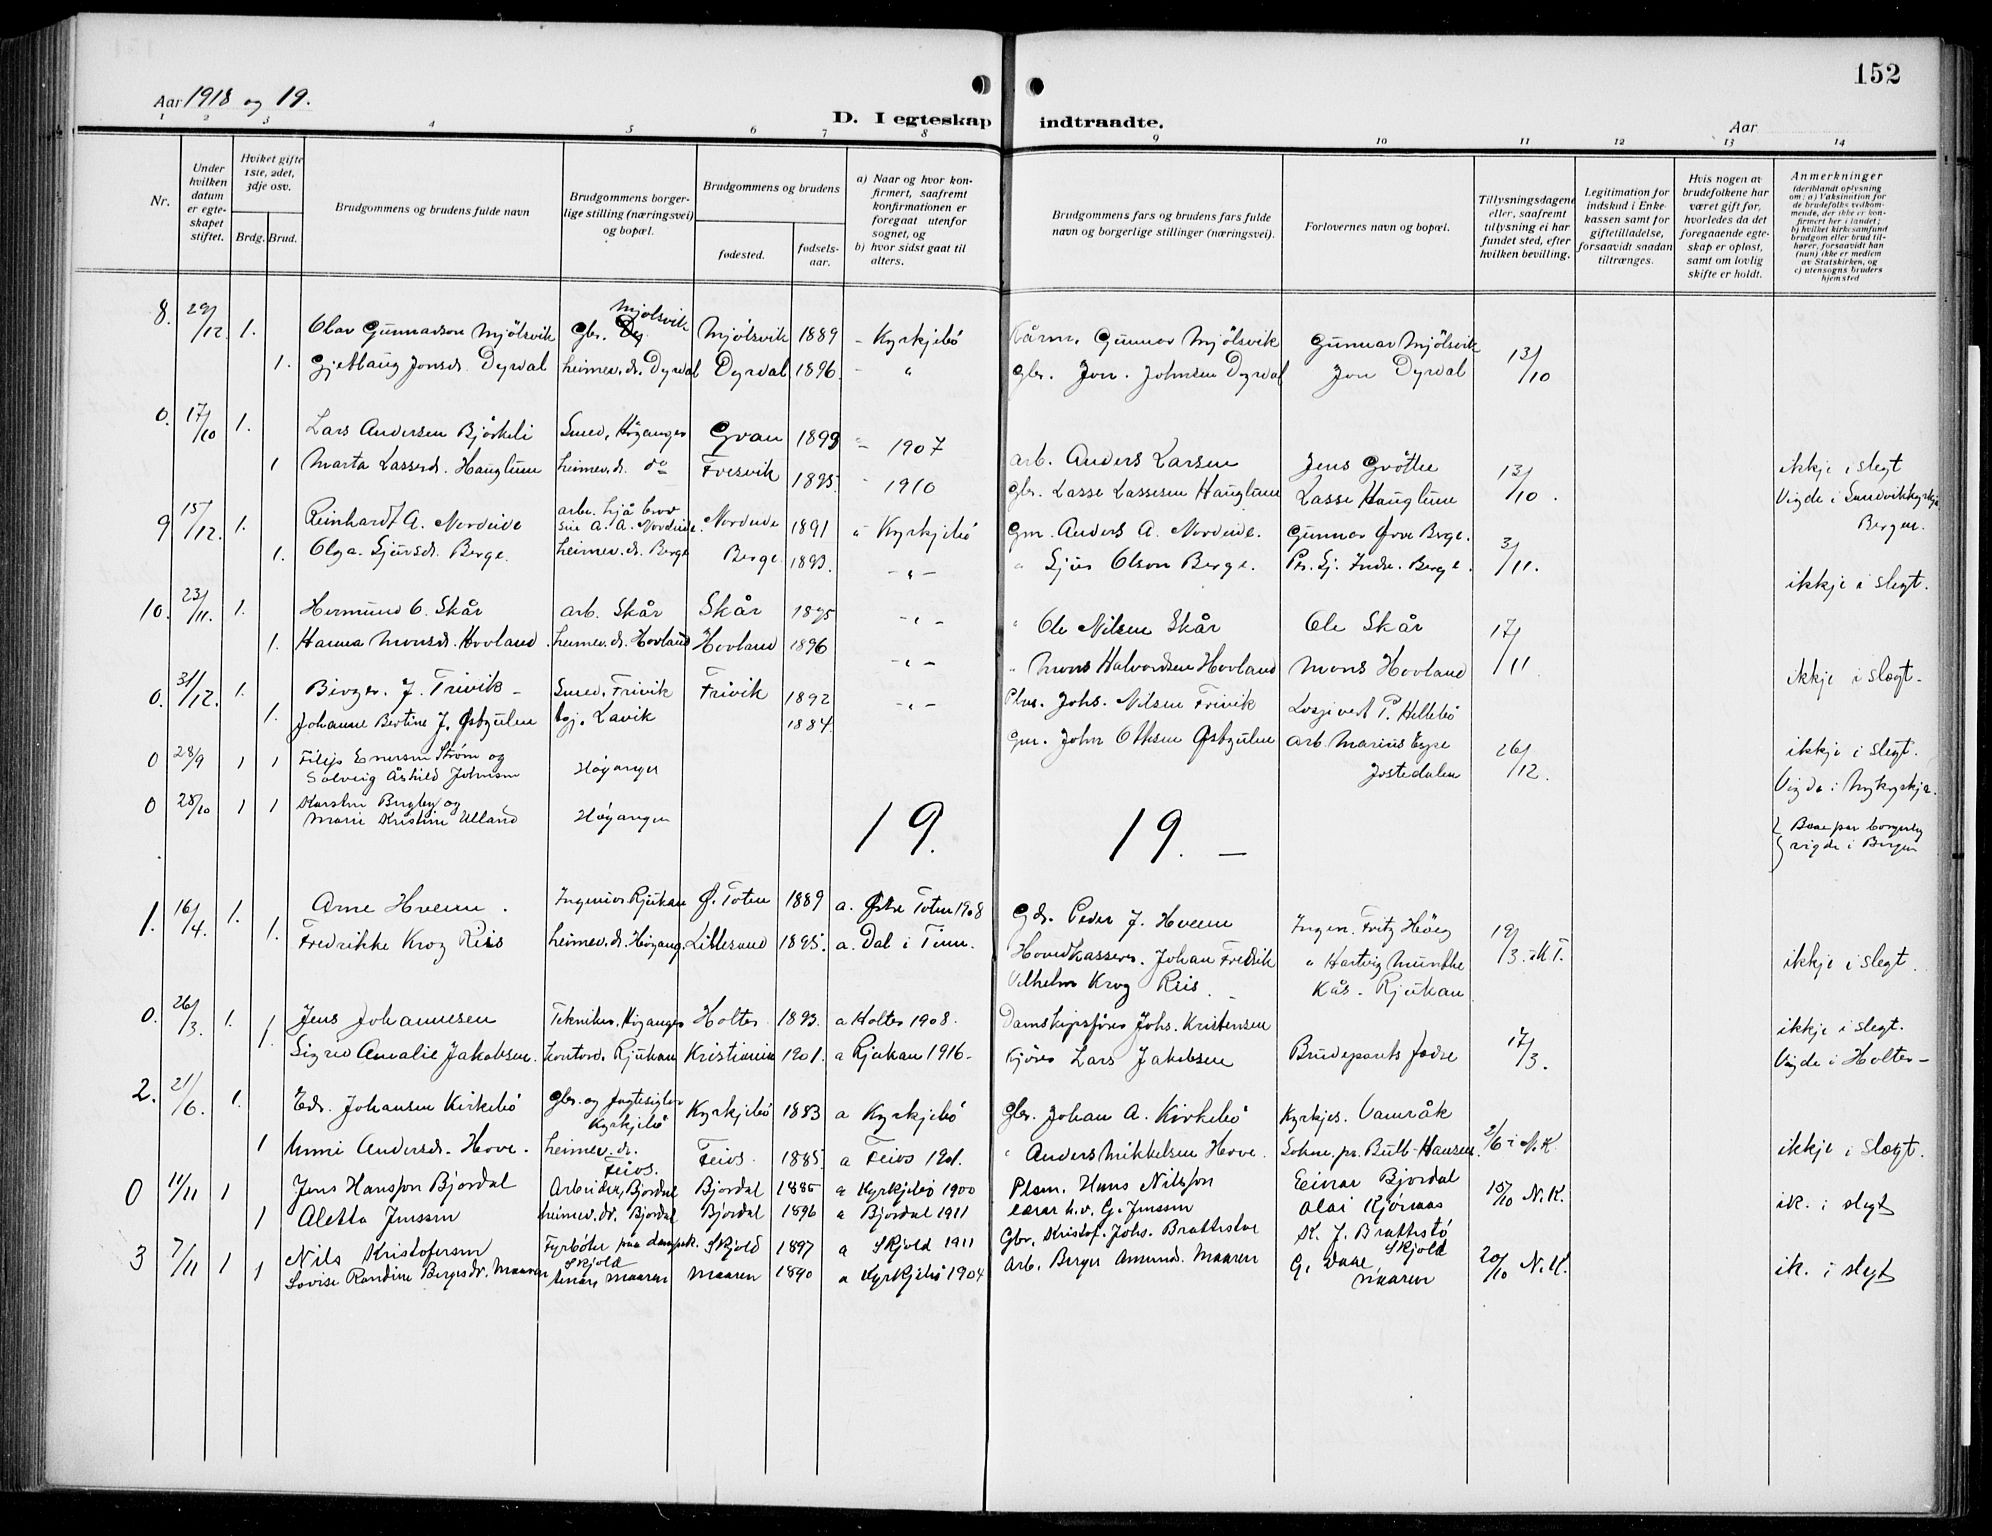 152
Aar 1918 og 19.
D. I egteskap indtraadte.
Aar
1 2 3 4 5 6 7 8 9 10 11 12 13 14
Nr.
Under hvilken datum er egteskapet stiftet.
Hviket gifte 1ste, 2det, 3dje osv.
Brdg. Brud.
Brudgommens og brudens fulde navn
Brudgommens borgerlige stilling (næringsvei) og bopæl.
Brudgommens og brudens
fødested.
fødselsaar.
a) Naar og hvor konfirmert, saafremt konfirmationen er foregaat utenfor sognet, og
b) hvor sidst gaat til alters.
Brudgommens fars og brudens fars fulde navn og borgerlige stillinger (næringsvei).
Forlovernes navn og bopæl.
Tillysningsdagene eller, saafremt tillysning ei har fundet sted, efter hvilken bevilling.
Legitimation for indskud i Enkekassen samt for giftetilladelse, forsaavidt saadan tiltrænges.
Hvis nogen av brudefolkene har været gift før, hvorledes da det foregaaende egteskap er opløst, samt om lovlig skifte er holdt.
Anmerkninger (deriblandt oplysning om: a) Vaksination for de brudefolks vedkommende, der ikke er konfirmert her i landet; b) hvilket kirkesamfund brudgom eller brud tilhører, forsaavidt han (hun) ikke er medlem av Statskirken, og c) utensogns bruders hjemsted
8. 29/12. 1. Olav Gunnarson Mjölsvik Gbr. Mjölsvik Mjölsvik 1889 - Kyrkjebö Kårm. Gunnar Mjölsvik Gunnar Mjölsvik 13/10
1. Gjertlaug Jonsd. Dyrdal heimev. d. Dyrdal Dyrdal 1896. - " Gbr. Jon. Johnsen Dyrdal Jon Dyrdal
0. 17/10 1. Lars Andersen Björkeli Smed, Höyanger Gran 1893 - 1907 arb. Anders Larsen Jens Gröttu 13/10. ikkje i slegt
1 Marta Lassesd. Hauglum heimev. d. do Fresvik 1895. - 1910 gbr. Lasse Lassesen Hauglum Lasse Hauglum Vigde i Sandvikkyrkja Bergen.
9 15/12. 1. Reinhardt A. Nordeide arb. hjå bror sin A. A. Nordeide. Nordeide 1891 " Kyrkjebö Gm. Anders A. Nordeide. Gunnar Övre Berge. 3/11.
1. Olga Sjursd. Berge. heimev. d. Berge Berge 1893. - " - " Sjur Olson Berge. Per. Sj. Indre. Berge. ikkje i slegt.
10. 23/11. 1. Hermund O. Skår arb. Skår Skår 1895 - " - " Ole Nilsen Skår Ole Skår 17/11
1. Hanna Monsd. Hovland. heimev. d. Hovland Hovland 1896 - " - " Mons Halvordsen Hovland Mons Hovland ikkje i slægt-
0. 31/12. 1. Birger. J. Frivik - Smed, Frivik Frivik 1892 - " - Plm. Johs. Nilsen Frivik P. Hillebö
1. Johanne Bertine J. Østgulen tgj. Lavik 1884. Gm. John Othsen Østgulen arb. Marius Eyre Jostedalen 26/12. ikkje i slegt.
0 28/9 1 1 Filip Enersen Strøm og Solveig Åshild Johnsen Høyanger Vigde i Nykyrkja.
0 28/10 1 1 Karsten Bergby og Marie Kristine Ulland Høyanger par borgerlig vigde i Bergen
19. 19. -
1. 16/4. 1. Arne Hveem. Ingeniør Rjukan Ø. Toten 1889 a. Østre Toten 1908 Gdr. Peder J. Hveem Ingen. Fritz Höeg 19/3. M T.
1. Fredrikke Krog Riis heimev. d. Höyang. Lillesand 1895. a. Dal i Tinn. Hovedkasserer. Johan Fredrik Vilhelm Krog Riis. " Hartvig Munthe Kås. Rjukan ikkje i slegt.
0. 26/3. 1. Jens Johannesen Tekniker, Höyanger Holter 1893. a Holter 1908. Damskipsförer Johs. Kristensen ikkje i slegt.
1. Sigrid Amalie Jakobsen. kontord. Rjukan Kristiania 1901. a Rjukan 1916- Kjörer Lars Jakobsen Brudeparets fedre 17/3. Vigde i Holter-
2. 21/6. 1. Edr. Johansen Kirkebö Gbr. og Jagtesigler Kyrkjebö Kyrkjebö 1883 a Kyrkjebö Gbr. Johan A. Kirkebö Kyrkjes. Vamråk
1 Unni Andersd. Hove. heimev. d. Feios. Feios 1885. a Feios 1901. " Anders Mikkelsen Hove. Sokne. pr. Bull-Hansen. 2/6 i N.K. ikkje i slægt.
0 11/11 1 Jens Hansson Bjordal Arbeider, Bjordal Bjordal 1885 a Kyrkjebö 1900 Plsm. Hans Nilsson Einar Bjordal 15/10 N.K. ik. i slegt
1 Aletta Jenssen heimev. dr. Bjordal Bjordal 1896 a Bjordal 1911 lærar h.v. G. Jenssen Olai Kjörnaas
3 7/11 1 Nils Kristofersen Fyrböter paa dampsk. Skjold Skjold 1897 a Skjold 1911 Gbr. Kristof. Johs. Brattestø K. J. Brattestø Skjold 20/10 N.K. ik. i slegt
1 Lovise Randine Bergersdr. Maaren Maaren Maaren 1890 a Kyrkjebö 1904 Arb. Berger Amund. Maaren G. Daae Maaren